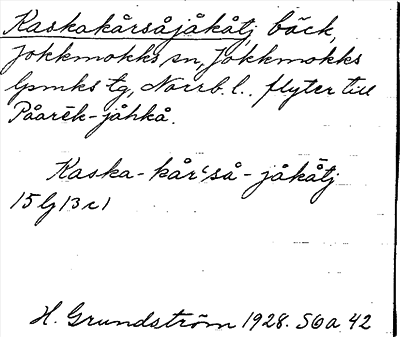 Kaskakårsåjåkåtj, bäck,
Jokkmokks sn, Jokkmokks
lpmks tg, Norrb. l.. flyter till
Påarēk-jåhkå.
Kaska-kår'så-jåkåtj
15 lj 13 c 1
H. Grundström 1928. S6a 42